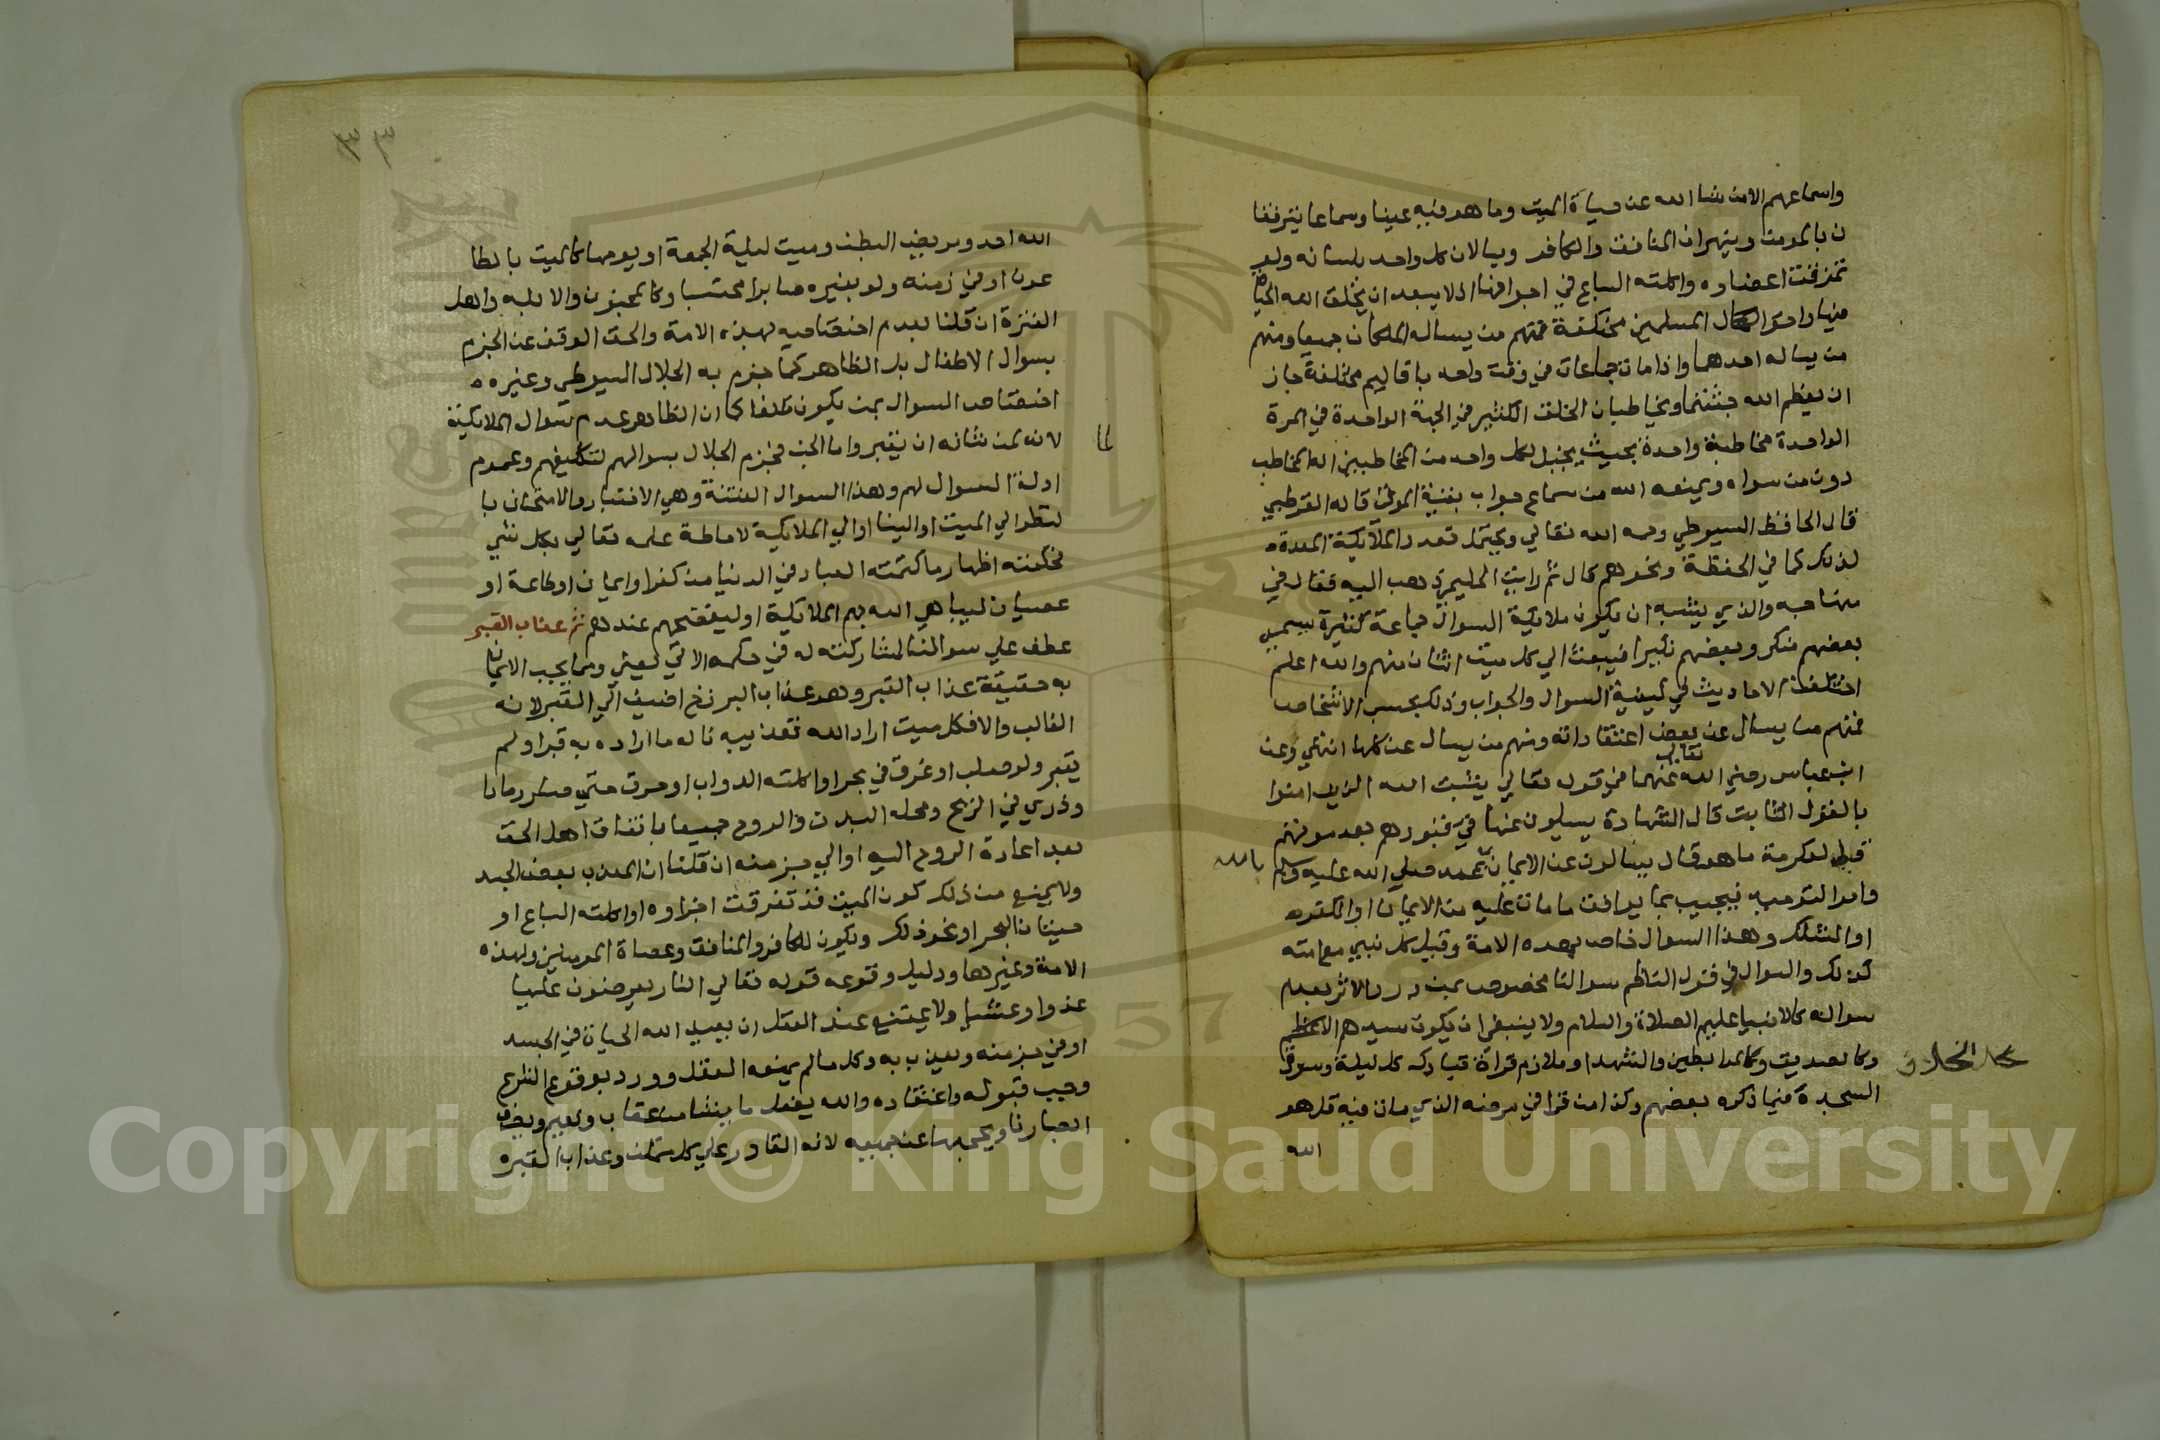 واسماعهم الا من شا الله عن حياة الميت وما هو فيه عينا وسماعا فيترفقا
ن بالمومن وينهران المنافق والكافر ويسالان كل واحد بلسانه ولو
تمزقت اعضاوه واكلته السباع في اجوافها اذ لا يبعد ان يخلق الله الحياة
فيها واحوال المسلمين مختلفة فمنهم من يساله الملكان جميعا ومنهم
من يساله احدهما واذا مات جماعات في وقت واحد باقاليم مختلفة جاز
ان يعظم الله جثتهما ويخاطبان الخلق الكثير في الجهة الواحدة في المرة
الواحدة مخاطبة واحدة بحيث يخيل لكل واحد من المخاطبين انه المخاطب
دون من سواه ويمنعه الله من سماع جواب بقية الموتى قاله القرطبي
قال الحافظ السيوطي رحمه الله تعالي ويحتمل تعدد الملايكة المعدة
لذلك كما في الحفظة ونحوهم قال ثم رايت الحليمي ذهب اليه فقال في
منهاجه والذي يشبه ان يكون ملايكة السوال جماعة كثيرة يسمي
بعضهم منكر وبعضهم نكيرا فيبعث الي كل ميت اثنان منهم والله اعلم
اختلفت الاحاديث في كيفية السوال والجواب وذلك بحسب الاشخاص
فمنهم من يسال عن بعض اعتقاداته ومنهم من يسال عن كلها انتهي وعن
ابن عباس رضي الله تعالي عنهما في قوله تعالي يثبت الله الذين امنوا
بالقول الثابت قال الشهادة يسيلون عنها في قبورهم بعد موتهم
قيل لعكرمة ما هو قال يسالون عن الايمان بمحمد صلي الله عليه وسلم
بالله
وامر التوحيد فيجيب بما يوافق ما مات عليه من الايمان او الكفر
او الشك وهذا السوال خاص بهذه الامة وقيل كل نبي مع امته
كذلك والسوال في قول الناظم سوالنا مخصوص بمن ورد الاثر بعدم
سواله كالانبيا عليهم الصلاة والسلام ولا ينبغي ان يكون سيدهم الاعظم
محل الخلاف
وكالصديق وكالمرابطين والشهدا وملازم قراة تبارك كل ليلة وسورة
السجدة فيما ذكره بعضهم وكذا من قرا في مرضه الذي مات فيه قل هو
الله
٣٣
الله احد ومريض البطن وميت ليلة الجمعة او يومها كالميت بالطا
عون او في زمنه ولو بغيره صابرا محتسبا وكالمجنون والابله واهل
الفترة ان قلنا بعدم اختصاصه بهذه الامة والحق الوقف عن الجزم
بسوال الاطفال بل الظاهر كما جزم به الجلال السيوطي وغيره
اختصاص السوال بمن يكون مكلفا كما ان الظاهر عدم سوال الملايكة
لانه لمن شانه ان يقبر واما الجن فجزم الجلال بسوالهم لتكليفهم وعموم
ادلة السوال لهم وهذا السوال الفتنة وهي الاختبار والامتحان با
لنظر الي الميت او الينا او الي الملايكة لاحاطة علمه تعالي بكل شي
فحكمته اظهار ما كتمته العباد في الدنيا من كفر وايمان او طاعة او
عصيان ليباهي الله بهم الملايكة او ليفضحهم عندهم ثم عذاب القبر
عطف علي سوالنا لمشاركته له في حكمه الاتي يعني ومما يجب الايمان
به حقيقة عذاب القبر وهو عذاب البرزخ اضيف الي القبر لانه
الغالب والا فكل ميت اراد الله تعذيبه ناله ما اراده به قبر او لم
يقبر ولو صلب او غرق في بحر او اكلته الدواب او حرق حتي صار رمادا
وذري في الريح ومحله البدن والروح جميعا باتفاق اهل الحق
بعد اعادة الروح اليه او الي جز منه ان قلنا ان المعذب بعض الجسد
ولا يمنع من ذلك كون الميت قد تفرقت اجزاوه او اكلته السباع او
حيتان البحر او نحو ذلك ويكون للكافر والمنافق وعصاة المومنين ولهذه
الامة وغيرها ودليل وقوعه قوله تعالي النار يعرضون عليها
غدوا وعشيا ولا يمتنع عند العقل ان يعيد الله الحياة في الجسد
او في جز منه ويعذب به وكل ما لم يمنعه العقل وورد بوقوعه الشرع
وجب قبوله واعتقاده والله يفعل ما يشا من عقاب ونعيم
ابصارنا ويحجبها عن جميعه لانه القادر علي كل ممكن وعذاب القبر